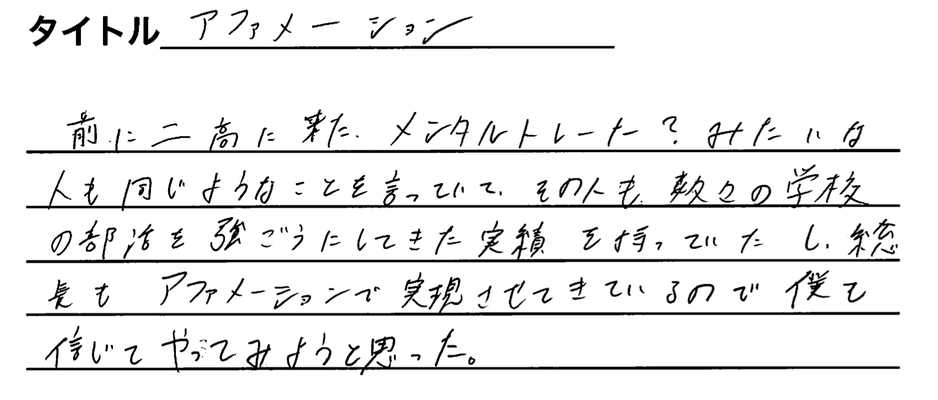 タイトル アファメーション
前に二高に来た、メンタルトレーナー？みたいな
人も同じようなことを言っていて、その人も、数々の学校
の部活を強ごうにしてきた実績を持っていたし、総
長もアファメーションで実現させてきているので僕も
信じてやってみようと思った。